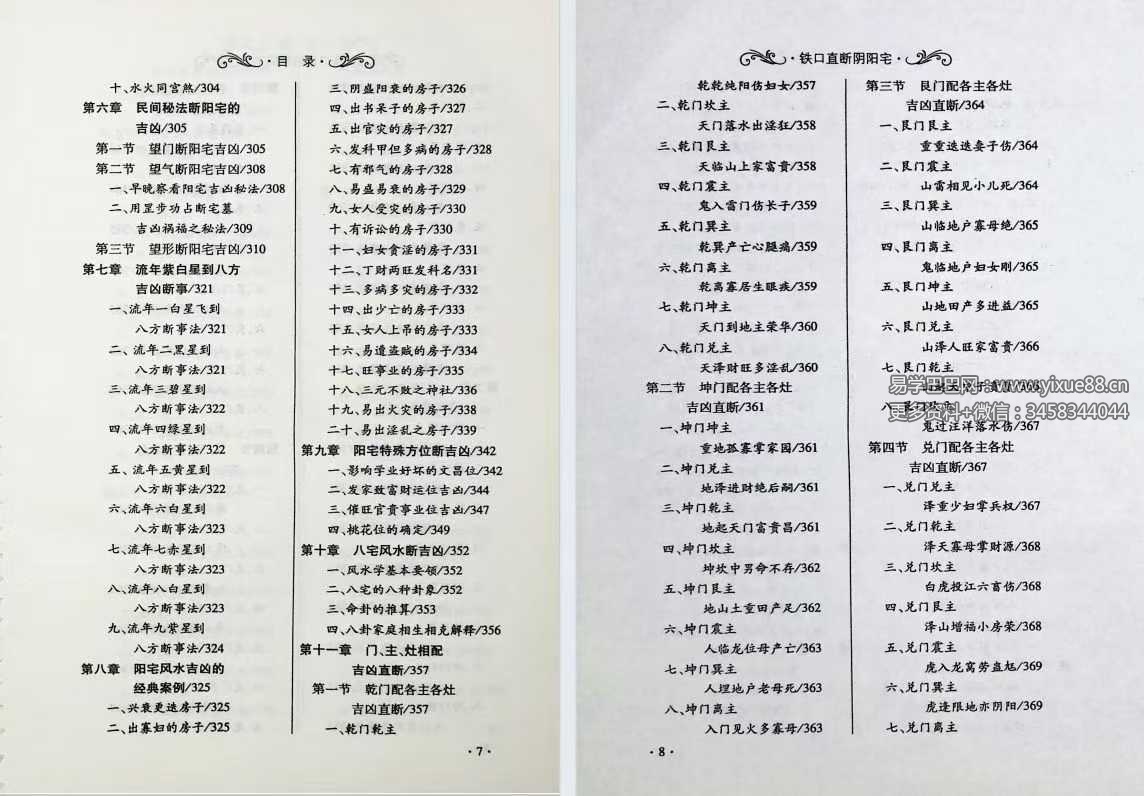 ·目 录·
十、水火同宫煞/304
第六章 民间秘法断阳宅的
吉凶/305
第一节 望门断阳宅吉凶/305
第二节 望气断阳宅吉凶/308
一、早晚察看阳宅吉凶秘法/308
二、用罡步功占断宅墓
吉凶祸福之秘法/309
第三节 望形断阳宅吉凶/310
第七章 流年紫白星到八方
吉凶断事/321
一、流年一白星飞到
八方断事法/321
二、流年二黑星到
八方断事法/321
三、流年三碧星到
八方断事法/322
四、流年四绿星到
八方断事法/322
五、流年五黄星到
八方断事法/322
六、流年六白星到
八方断事法/323
七、流年七赤星到
八方断事法/323
八、流年八白星到
八方断事法/323
九、流年九紫星到
八方断事法/324
第八章 阳宅风水吉凶的
经典案例/325
一、兴衰更迭房子/325
二、出寡妇的房子/325
三、阴盛阳衰的房子/326
四、出书呆子的房子/327
五、出官灾的房子/327
六、发科甲但多病的房子/328
七、有邪气的房子/328
八、易盛易衰的房子/329
九、女人受灾的房子/330
十、有诉讼的房子/330
十一、妇女贪淫的房子/331
十二、丁财两旺发科名/331
十三、多病多灾的房子/332
十四、出少亡的房子/333
十五、女人上吊的房子/333
十六、易遭盗贼的房子/334
十七、旺事业的房子/335
十八、三元不败之神社/336
十九、易出火灾的房子/338
二十、易出淫乱之房子/339
第九章 阳宅特殊方位断吉凶/342
一、影响学业好坏的文昌位/342
二、发家致富财运位吉凶/344
三、催旺官贵事业位吉凶/347
四、桃花位的确定/349
第十章 八宅风水断吉凶/352
一、风水学基本要领/352
二、八宅的八种卦象/352
三、命卦的推算/353
四、八卦家庭相生相克解释/356
第十一章 门、主、灶相配
吉凶直断/357
第一节 乾门配各主各灶
吉凶直断/357
一、乾门乾主
·7·
·铁口直断阴阳宅·
乾乾纯阳伤妇女/357
二、乾门坎主
天门落水出淫狂/358
三、乾门艮主
天临山上家富贵/358
四、乾门震主
鬼入雷门伤长子/359
五、乾门巽主
乾巽产亡心腿痛/359
六、乾门离主
乾离寡居生眼疾/359
七、乾门坤主
天门到地主荣华/360
八、乾门兑主
天泽财旺多淫乱/360
第二节 坤门配各主各灶
吉凶直断/361
一、坤门坤主
重地孤寡掌家园/361
二、坤门兑主
地泽进财绝后嗣/361
三、坤门乾主
地起天门富贵昌/361
四、坤门坎主
坤坎中男命不存/362
五、坤门艮主
地山土重田产足/362
六、坤门震主
人临龙位母产亡/363
七、坤门巽主
人埋地户老母死/363
八、坤门离主
入门见火多寡母/363
第三节 艮门配各主各灶
吉凶直断/364
一、艮门艮主
重重迭迭妻子伤/364
二、艮门震主
山雷相见小儿死/364
三、艮门巽主
山临地户寡母绝/365
四、艮门离主
鬼临地户妇女刚/365
五、艮门坤主
山地田产多进益/365
六、艮门兑主
山泽人旺家富贵/366
七、艮门乾主
易学巴巴网:www.yixue88.cn
更多资料+微信:3458344044
鬼过汪洋落水伤/367
第四节 兑门配各主各灶
吉凶直断/367
一、兑门兑主
泽重少妇掌兵权/367
二、兑门乾主
泽天寡母掌财源/368
三、兑门坎主
白虎投江六畜伤/368
四、兑门艮主
泽山增福小房荣/368
五、兑门震主
虎入龙窝劳蛊尪/369
六、兑门巽主
虎逢限地亦阴阳/369
七、兑门离主
·8·